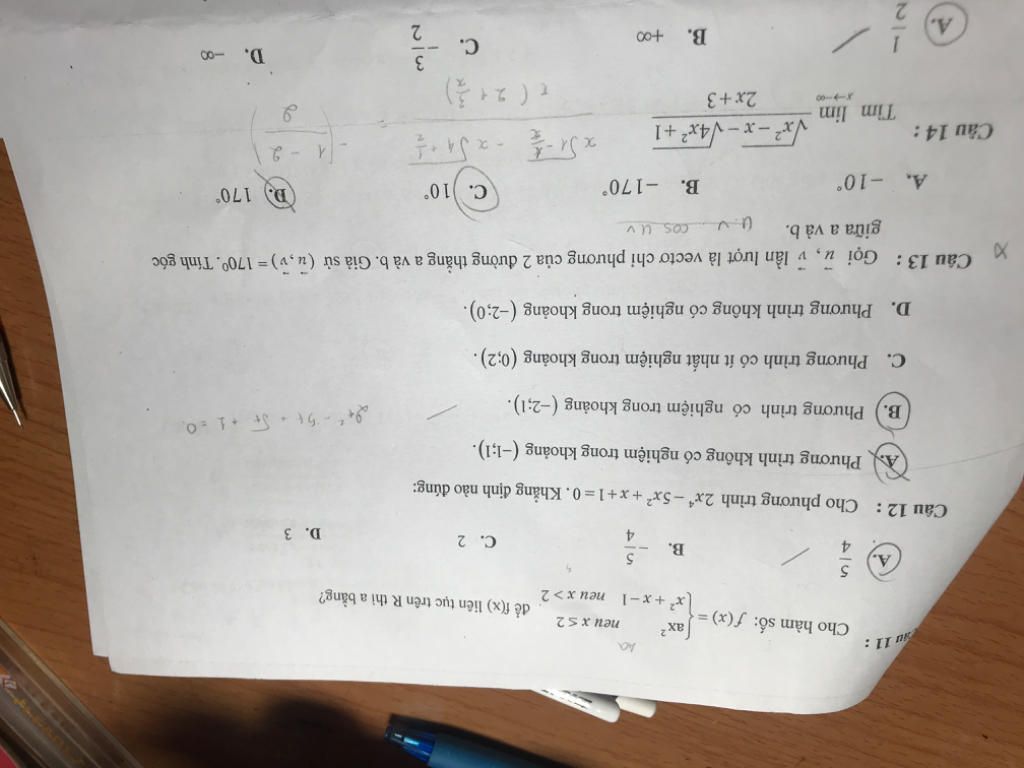 Câu 11 : Cho hàm số: f(x) = { ax² neu x ≤ 2 ; x² + x − 1 neu x > 2 để f(x) liên tục trên R thì a bằng?
A. 5/4 B. −5/4 C. 2 D. 3
Câu 12 : Cho phương trình 2x⁴ − 5x² + x + 1 = 0. Khẳng định nào đúng:
A. Phương trình không có nghiệm trong khoảng (−1;1).
B. Phương trình có nghiệm trong khoảng (−2;1).
C. Phương trình có ít nhất nghiệm trong khoảng (0;2).
D. Phương trình không có nghiệm trong khoảng (−2;0).
Câu 13 : Gọi u, v lần lượt là vectơ chỉ phương của 2 đường thẳng a và b. Giả sử (u, v) = 170⁰. Tính góc
giữa a và b.
u.v cos uv
A. −10° B. −170° C. 10° D. 170°
Câu 14 : Tìm lim x→−∞ (√(x² − x) − √(4x² + 1)) / (2x + 3)
A. 1/2 B. +∞ C. −3/2 D. −∞